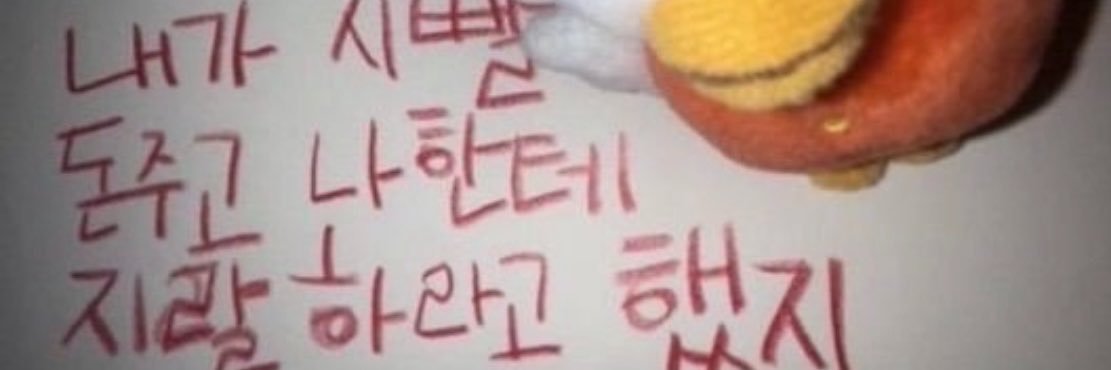 내가 시빨
돈주고 나한테
지랄 하라고 했지